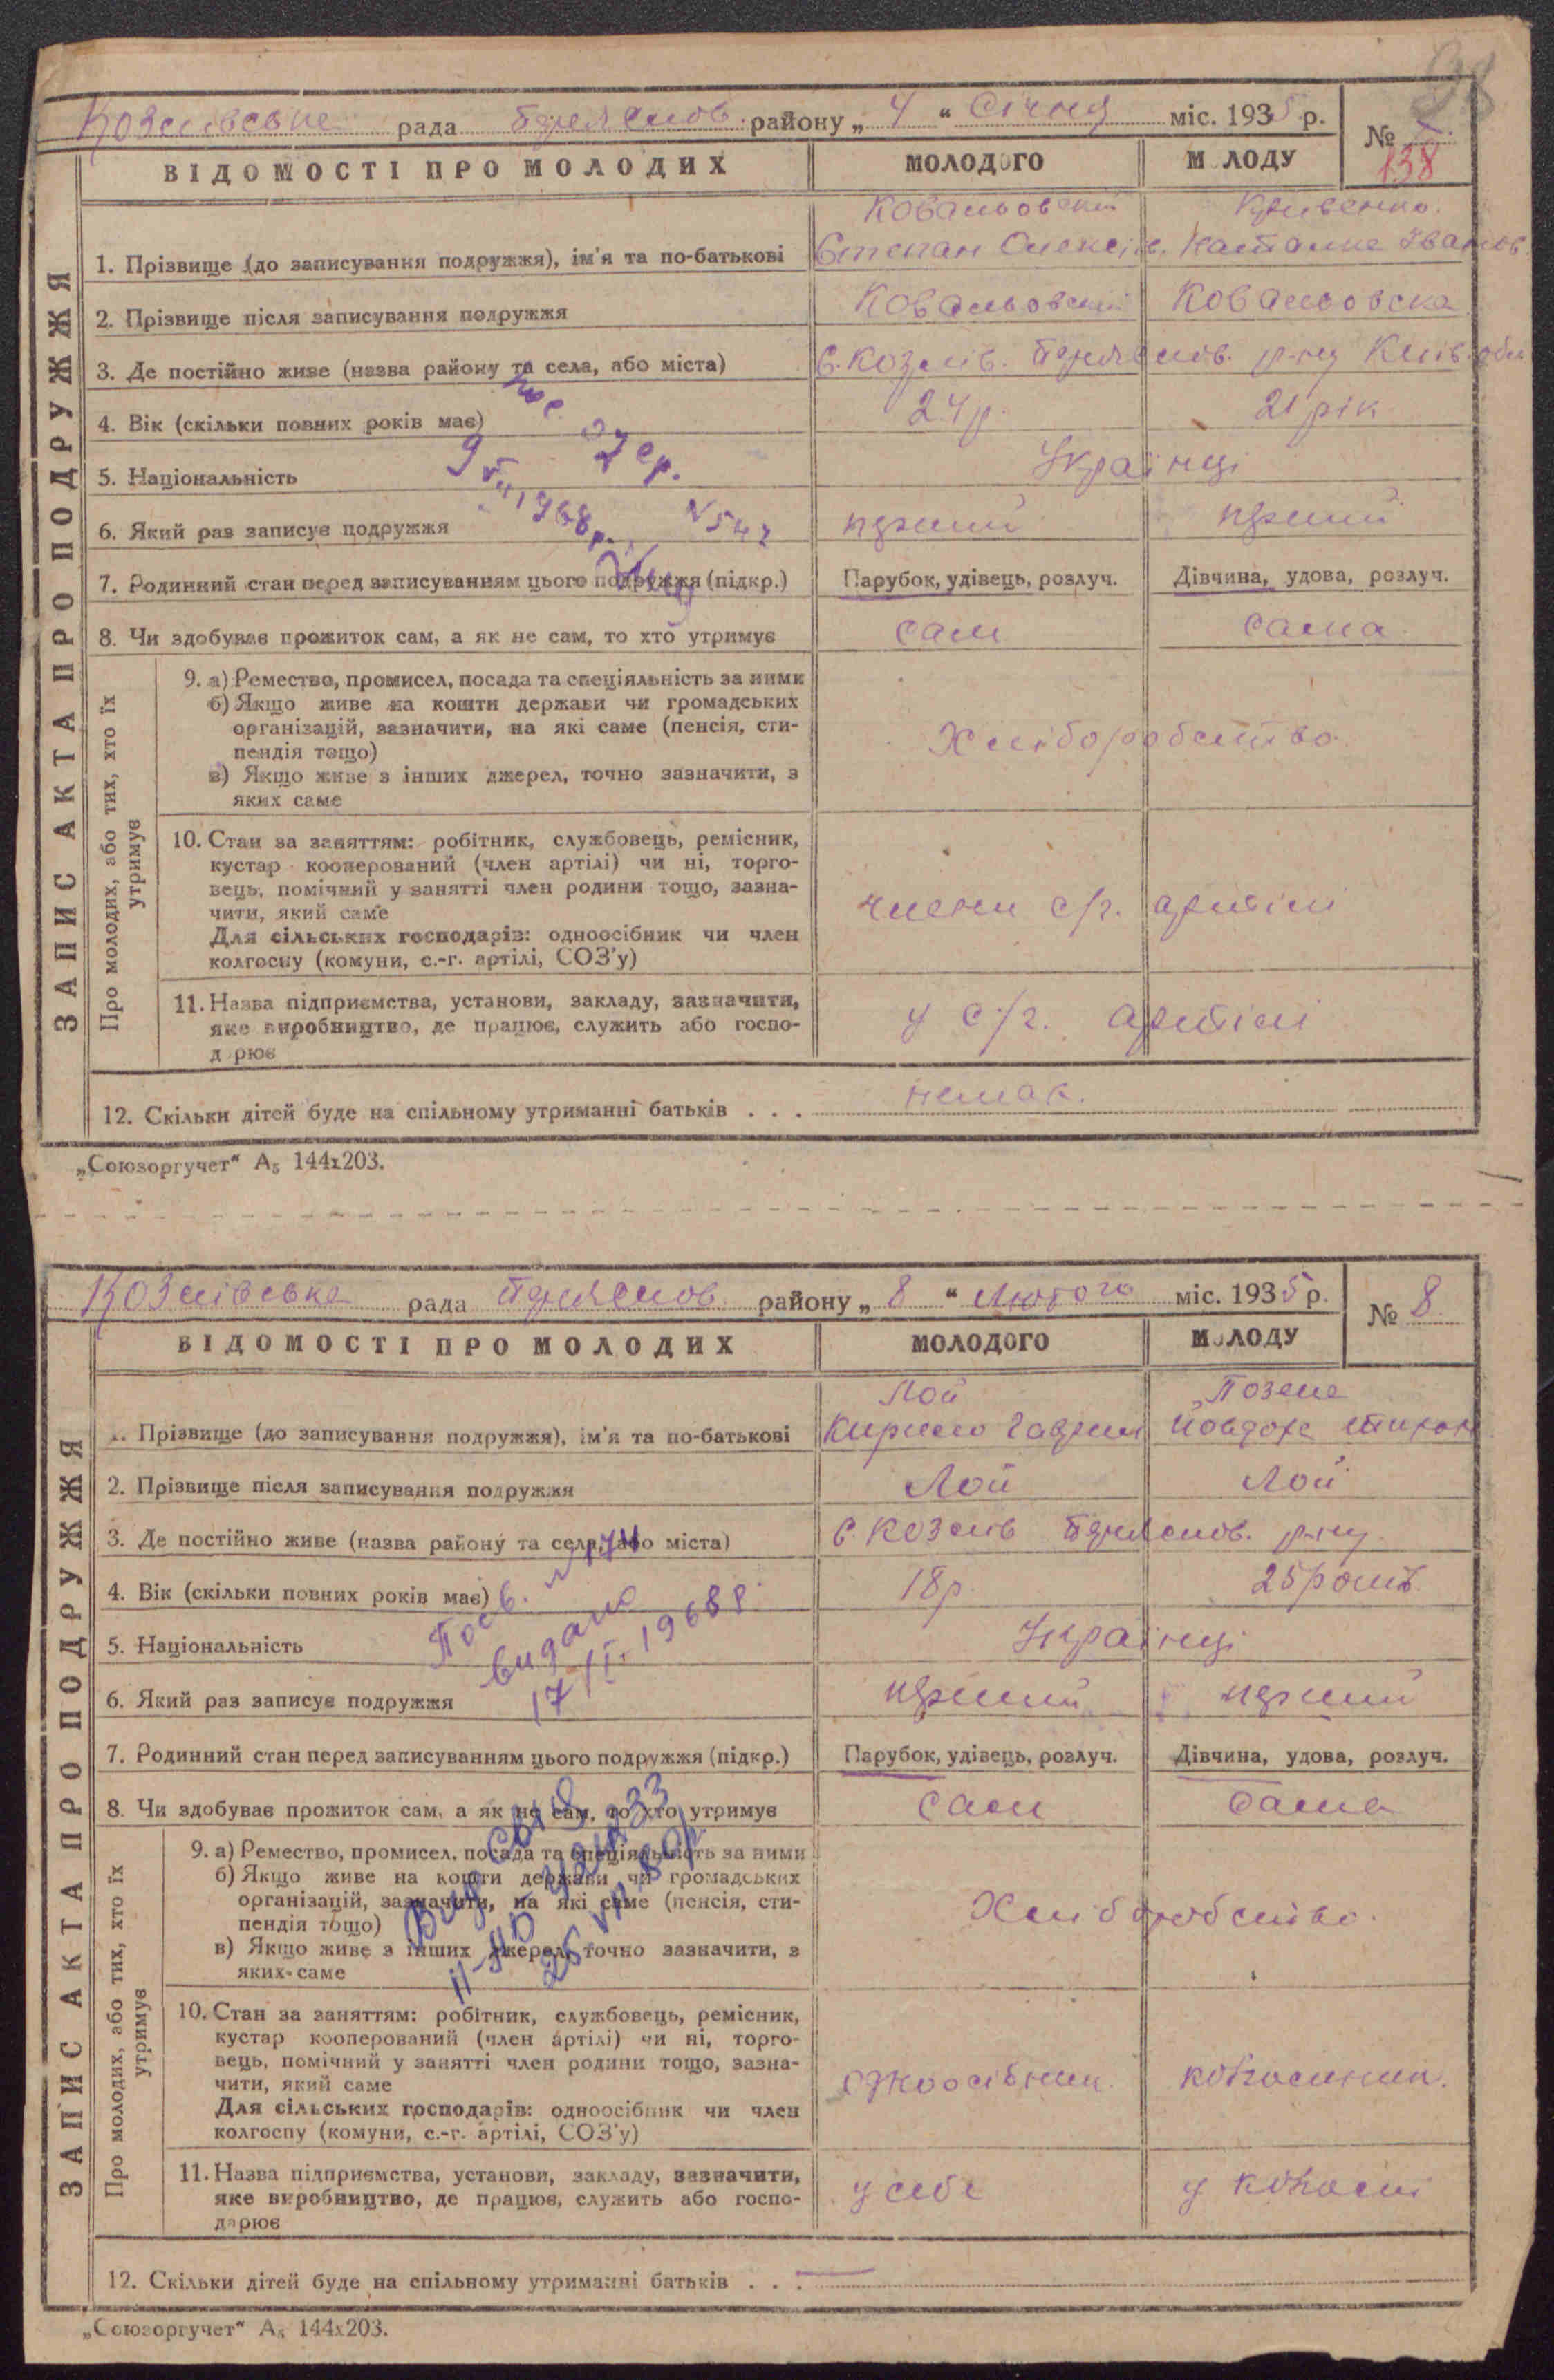 Козлівська рада Переяслов району „4“ Січня міс. 1935 р.
№
138
ВІДОМОСТІ ПРО МОЛОДИХ МОЛОДОГО МОЛОДУ
ЗАПИС АКТА ПРО ПОДРУЖЖЯ
Ковальовский Кривенко
1. Прізвище (до записування подружжя), ім'я та по-батькові Степан Олексів. Наталка Іванов.
2. Прізвище після записування подружжя Ковальовский Ковальовска
3. Де постійно живе (назва району та села, або міста) С. Козлів. Переяслов. р-ну Київ. обл
4. Вік (скільки повних років має) 24 р. 21 рік
5. Національність Українці
9 1968 р. № 542
6. Який раз записує подружжя перший перший
7. Родинний стан перед записуванням цього подружжя (підкр.) Парубок, удівець, розлуч. Дівчина, удова, розлуч.
8. Чи здобуває прожиток сам, а як не сам, то хто утримує сам сама
Про молодих, або тих, хто їх утримує
9. а) Ремество, промисел, посада та спеціяльність за ними
б) Якщо живе на кошти держави чи громадських
організацій, зазначити, на які саме (пенсія, сти-
пендія тощо)
Хліборобство
в) Якщо живе з інших джерел, точно зазначити, з
яких саме
10. Стан за заняттям: робітник, службовець, ремісник,
кустар кооперований (член артілі) чи ні, торго-
вець, помічний у занятті член родини тощо, зазна-
чити, який саме
члени с/г. артілі
Для сільських господарів: одноосібник чи член
колгоспу (комуни, с.-г. артілі, СОЗ'у)
11. Назва підприємства, установи, закладу, зазначити,
яке виробництво, де працює, служить або госпо-
дарює
у с/г. артілі
12. Скільки дітей буде на спільному утриманні батьків . . . немає.
„Союзоргучет“ А₅ 144х203.
Козлівська рада Переяслов району „8“ Лютого міс. 1935 р.
№ 8
ВІДОМОСТІ ПРО МОЛОДИХ МОЛОДОГО МОЛОДУ
ЗАПИС АКТА ПРО ПОДРУЖЖЯ
Лой
1. Прізвище (до записування подружжя), ім'я та по-батькові Кирило Гаврил
2. Прізвище після записування подружжя Лой Лой
3. Де постійно живе (назва району та села, або міста) С. Козлів Переяслов. р-ну
4. Вік (скільки повних років має) 18 р. 25 років.
5. Національність Українці
видано
6. Який раз записує подружжя перший перший
7. Родинний стан перед записуванням цього подружжя (підкр.) Парубок, удівець, розлуч. Дівчина, удова, розлуч.
8. Чи здобуває прожиток сам, а як не сам, то хто утримує Сам Сама
Про молодих, або тих, хто їх утримує
9. а) Ремество, промисел, посада та спеціяльність за ними
б) Якщо живе на кошти держави чи громадських
організацій, зазначити, на які саме (пенсія, сти-
пендія тощо)
Хліборобство.
в) Якщо живе з інших джерел, точно зазначити, з
яких саме
10. Стан за заняттям: робітник, службовець, ремісник,
кустар кооперований (член артілі) чи ні, торго-
вець, помічний у занятті член родини тощо, зазна-
чити, який саме
одноосібник. колгоспник.
Для сільських господарів: одноосібник чи член
колгоспу (комуни, с.-г. артілі, СОЗ'у)
11. Назва підприємства, установи, закладу, зазначити,
яке виробництво, де працює, служить або госпо-
дарює
у себе у колгоспі
12. Скільки дітей буде на спільному утриманні батьків . . . —
„Союзоргучет“ А₅ 144х203.